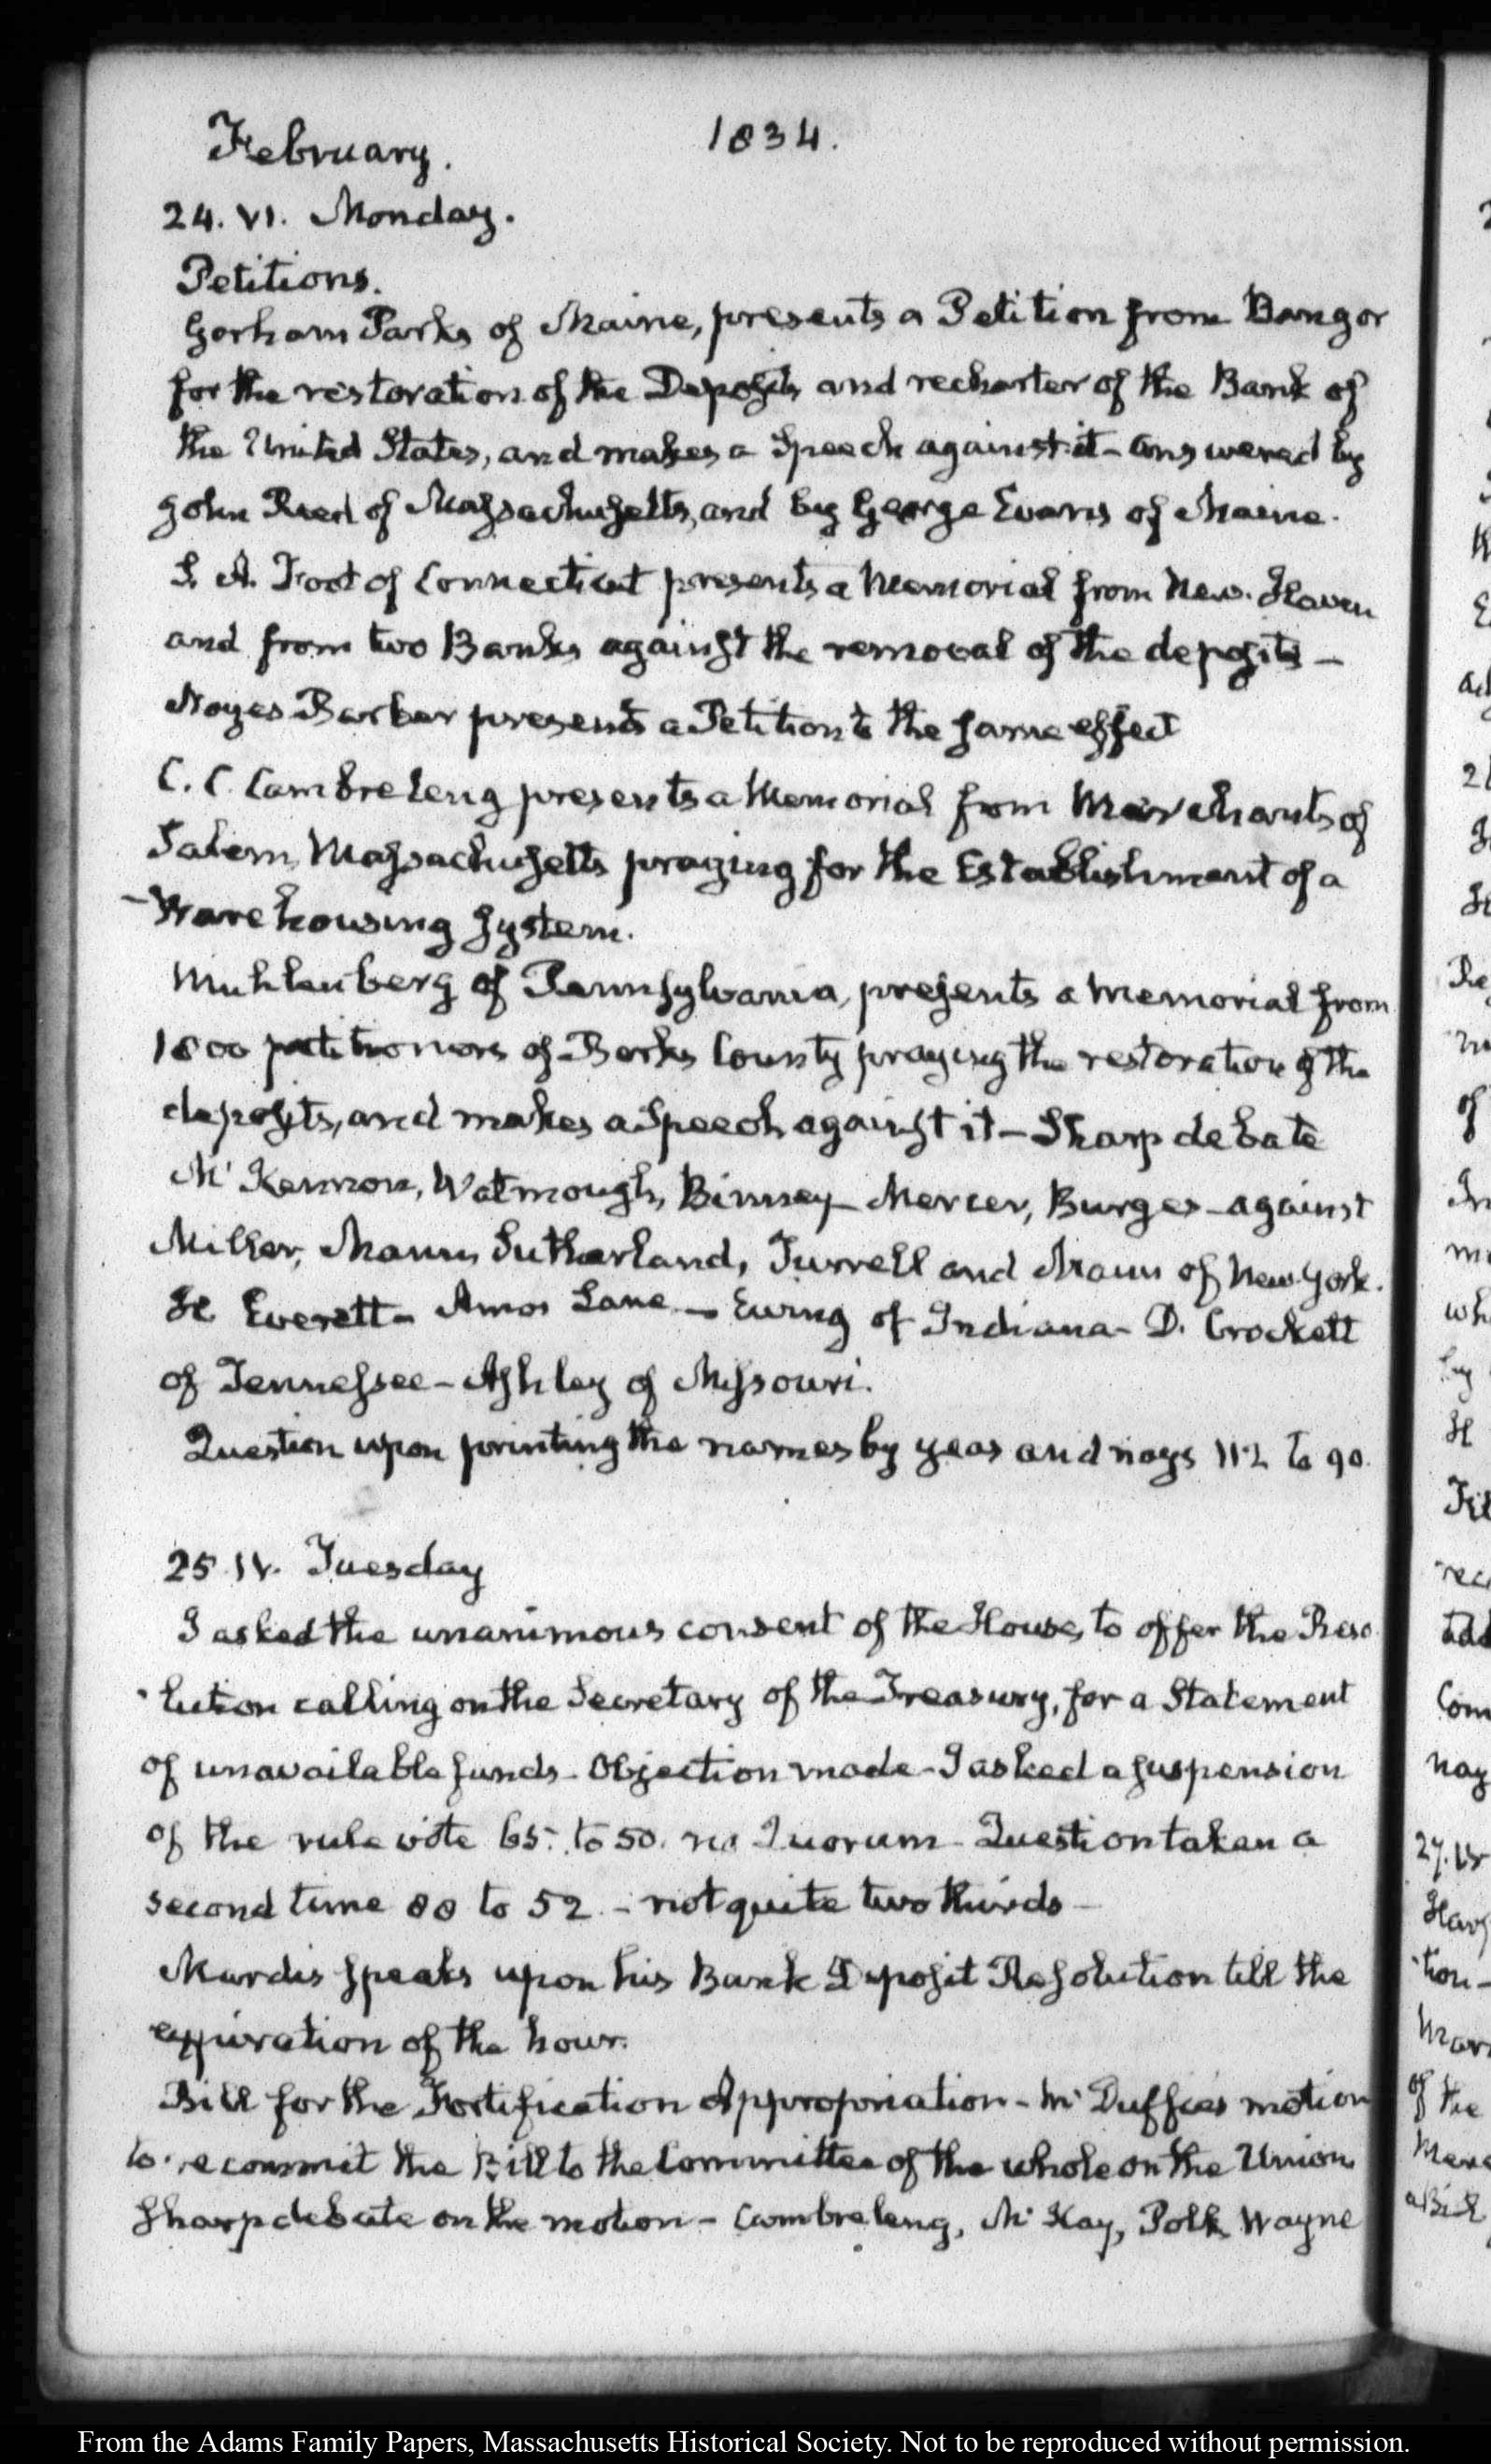 February. 1834.
24. VI. Monday.
Petitions.
Gorham Parks of Maine, presents a Petition from Bangor
for the restoration of the Deposits and recharter of the Bank of
the United States, and makes a Speech against it - answered by
John Reed of Massachusetts, and by George Evans of Maine.
S. A. Foot of Connecticut presents a Memorial from New-Haven
and from two Banks against the removal of the deposits -
Noyes Barber presents a Petition to the same effect
C. C. Cambreleng presents a Memorial from Merchants of
Salem, Massachusetts praying for the Establishment of a
Warehousing System.
Muhlenberg of Pennsylvania, presents a Memorial from
1800 petitioners of Berks County praying the restoration of the
deposits, and makes a Speech against it - Sharp debate
McKennon, Watmough, Binney - Mercer, Burges - against
Miller, Mann, Sutherland, Turrell and Mann of New York.
H Everett - Amos Lane - Ewing of Indiana - D. Crockett
of Tennessee - Ashley of Missouri.
Question upon printing the names by yeas and nays 112 to 90.
25. IV. Tuesday
I asked the unanimous consent of the House, to offer the Reso
-lution calling on the Secretary of the Treasury, for a Statement
of unavailable funds - Objection made - I asked a suspension
of the rule vote 65. to 50. no Quorum - Question taken a
second time 88 to 52. - not quite two thirds -
Mardis speaks upon his Bank Deposit Resolution till the
expiration of the hour.
Bill for the Fortification Appropriation - McDuffie's motion
to recommit the Bill to the Committee of the whole on the Union
Sharp debate on the motion - Cambreleng, McKay, Polk, Wayne
From the Adams Family Papers, Massachusetts Historical Society. Not to be reproduced without permission.